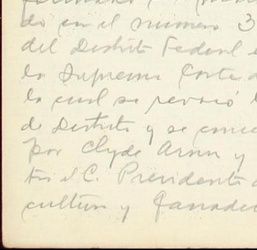 do en el número 3
del Distrito Federal e
la Suprema Corte d
la cual se revocó l
de Distrito y se conce
por Clyde Arnn y
tra el C. Presidente d
cultura y Ganader